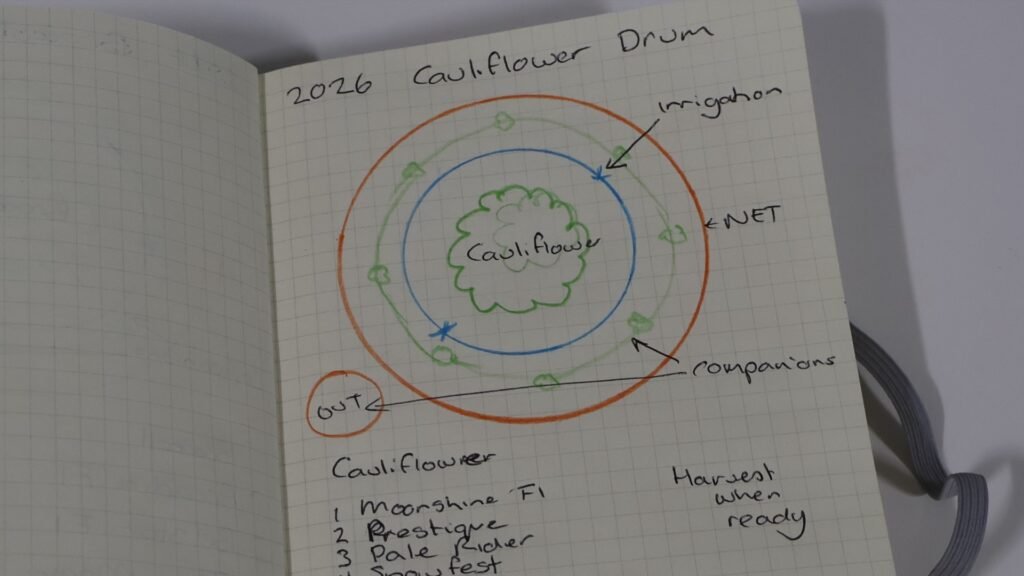 2026 Cauliflower Drum
irrigation
Cauliflower
NET
companions
OUT
Cauliflower
1 Moonshine F1
2 Prestique
3 Pale Rider
4 Snowfest
Harvest
when
ready